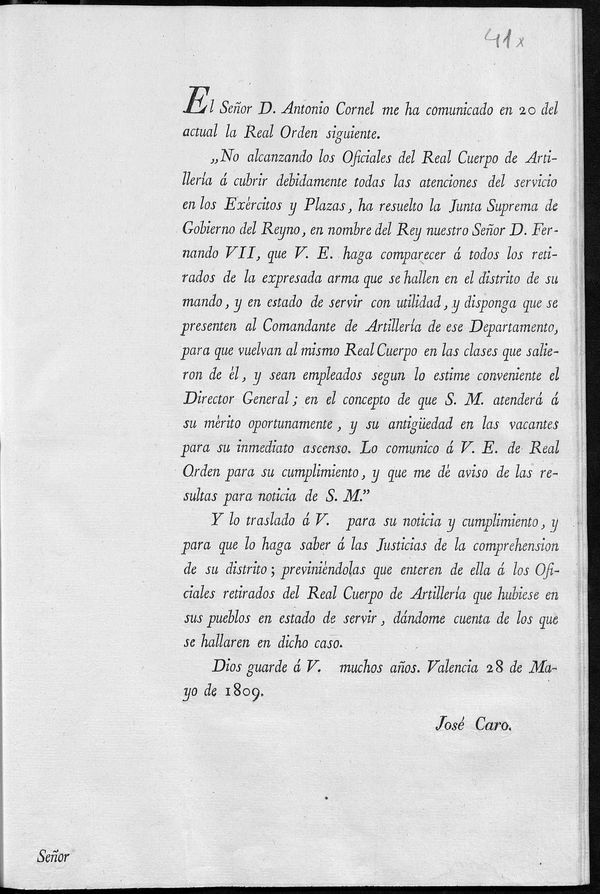 41x
El Señor D. Antonio Cornel me ha comunicado en 20 del
actual la Real Orden siguiente.
„No alcanzando los Oficiales del Real Cuerpo de Arti-
llería á cubrir debidamente todas las atenciones del servicio
en los Exércitos y Plazas, ha resuelto la Junta Suprema de
Gobierno del Reyno, en nombre del Rey nuestro Señor D. Fer-
nando VII, que V. E. haga comparecer á todos los reti-
rados de la expresada arma que se hallen en el distrito de su
mando, y en estado de servir con utilidad, y disponga que se
presenten al Comandante de Artillería de ese Departamento,
para que vuelvan al mismo Real Cuerpo en las clases que salie-
ron de él, y sean empleados segun lo estime conveniente el
Director General; en el concepto de que S. M. atenderá á
su mérito oportunamente, y su antigüedad en las vacantes
para su inmediato ascenso. Lo comunico á V. E. de Real
Orden para su cumplimiento, y que me dé aviso de las re-
sultas para noticia de S. M.”
Y lo traslado á V. para su noticia y cumplimiento, y
para que lo haga saber á las Justicias de la comprehension
de su distrito; previniéndolas que enteren de ella á los Ofi-
ciales retirados del Real Cuerpo de Artillería que hubiese en
sus pueblos en estado de servir, dándome cuenta de los que
se hallaren en dicho caso.
Dios guarde á V. muchos años. Valencia 28 de Ma-
yo de 1809.
José Caro.
Señor